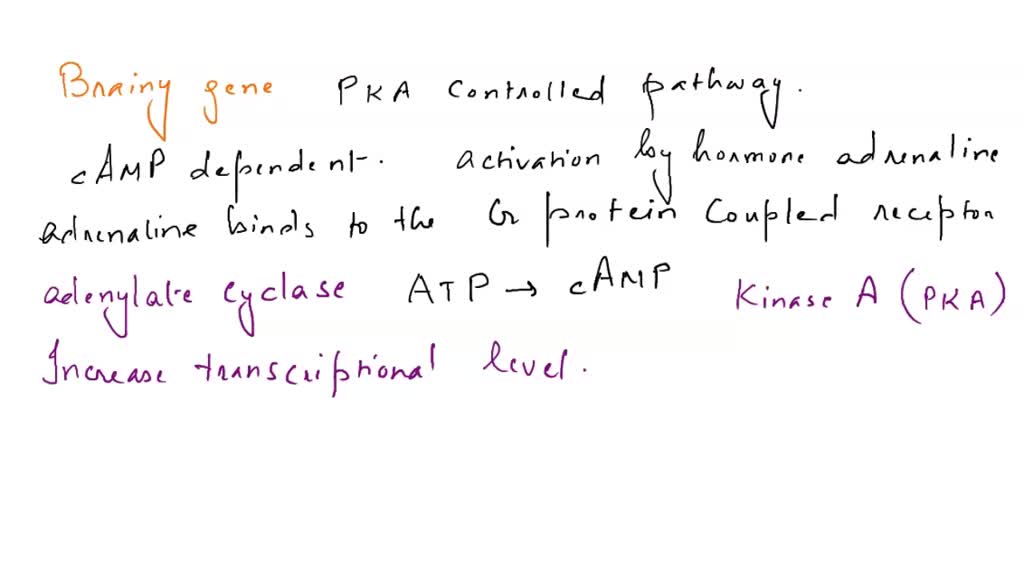 Brainy gene PKA controlled pathway.
cAMP dependent. activation by hormone adrenaline
adrenaline binds to the G protein coupled receptor
adenylate cyclase ATP → cAMP Kinase A (PKA)
Increase transcriptional level.